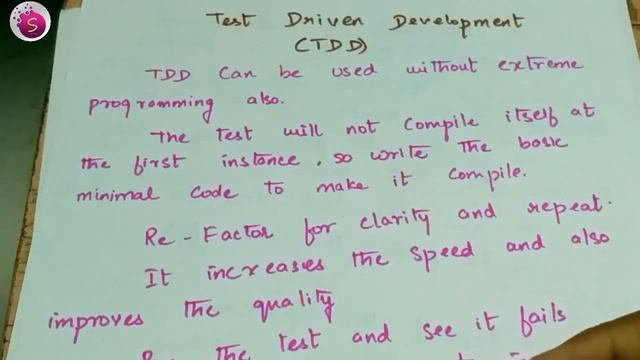 S
Test Driven Development
(TDD)
TDD can be used without extreme
programming also.
The test will not compile itself at
the first instance, so write the basic
minimal code to make it compile.
Re-Factor for clarity and repeat.
It increases the speed and also
improves the quality
the test and see it fails